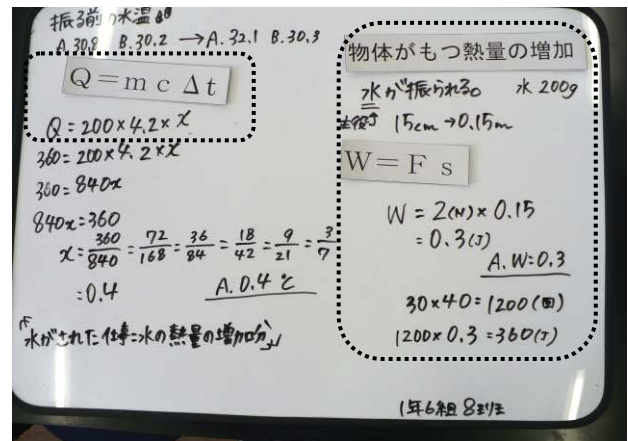 振る前の水温
A.30.8 B.30.2 →A.32.1 B.30.3
Q=mcΔt
Q=200×4.2×x
360=200×4.2×x
360=840x
840x=360
x=360/840=72/168=36/84=18/42=9/21=3/7
=0.4 A. 0.4℃
「水がされた仕事=水の熱量の増加分」
物体がもつ熱量の増加
水が振られる。 水 200g
主役↑ 15cm→0.15m
W=Fs
W=2(N)×0.15
=0.3(J)
A. W=0.3
30×40=1200(回)
1200×0.3=360(J)
1年6組 8班